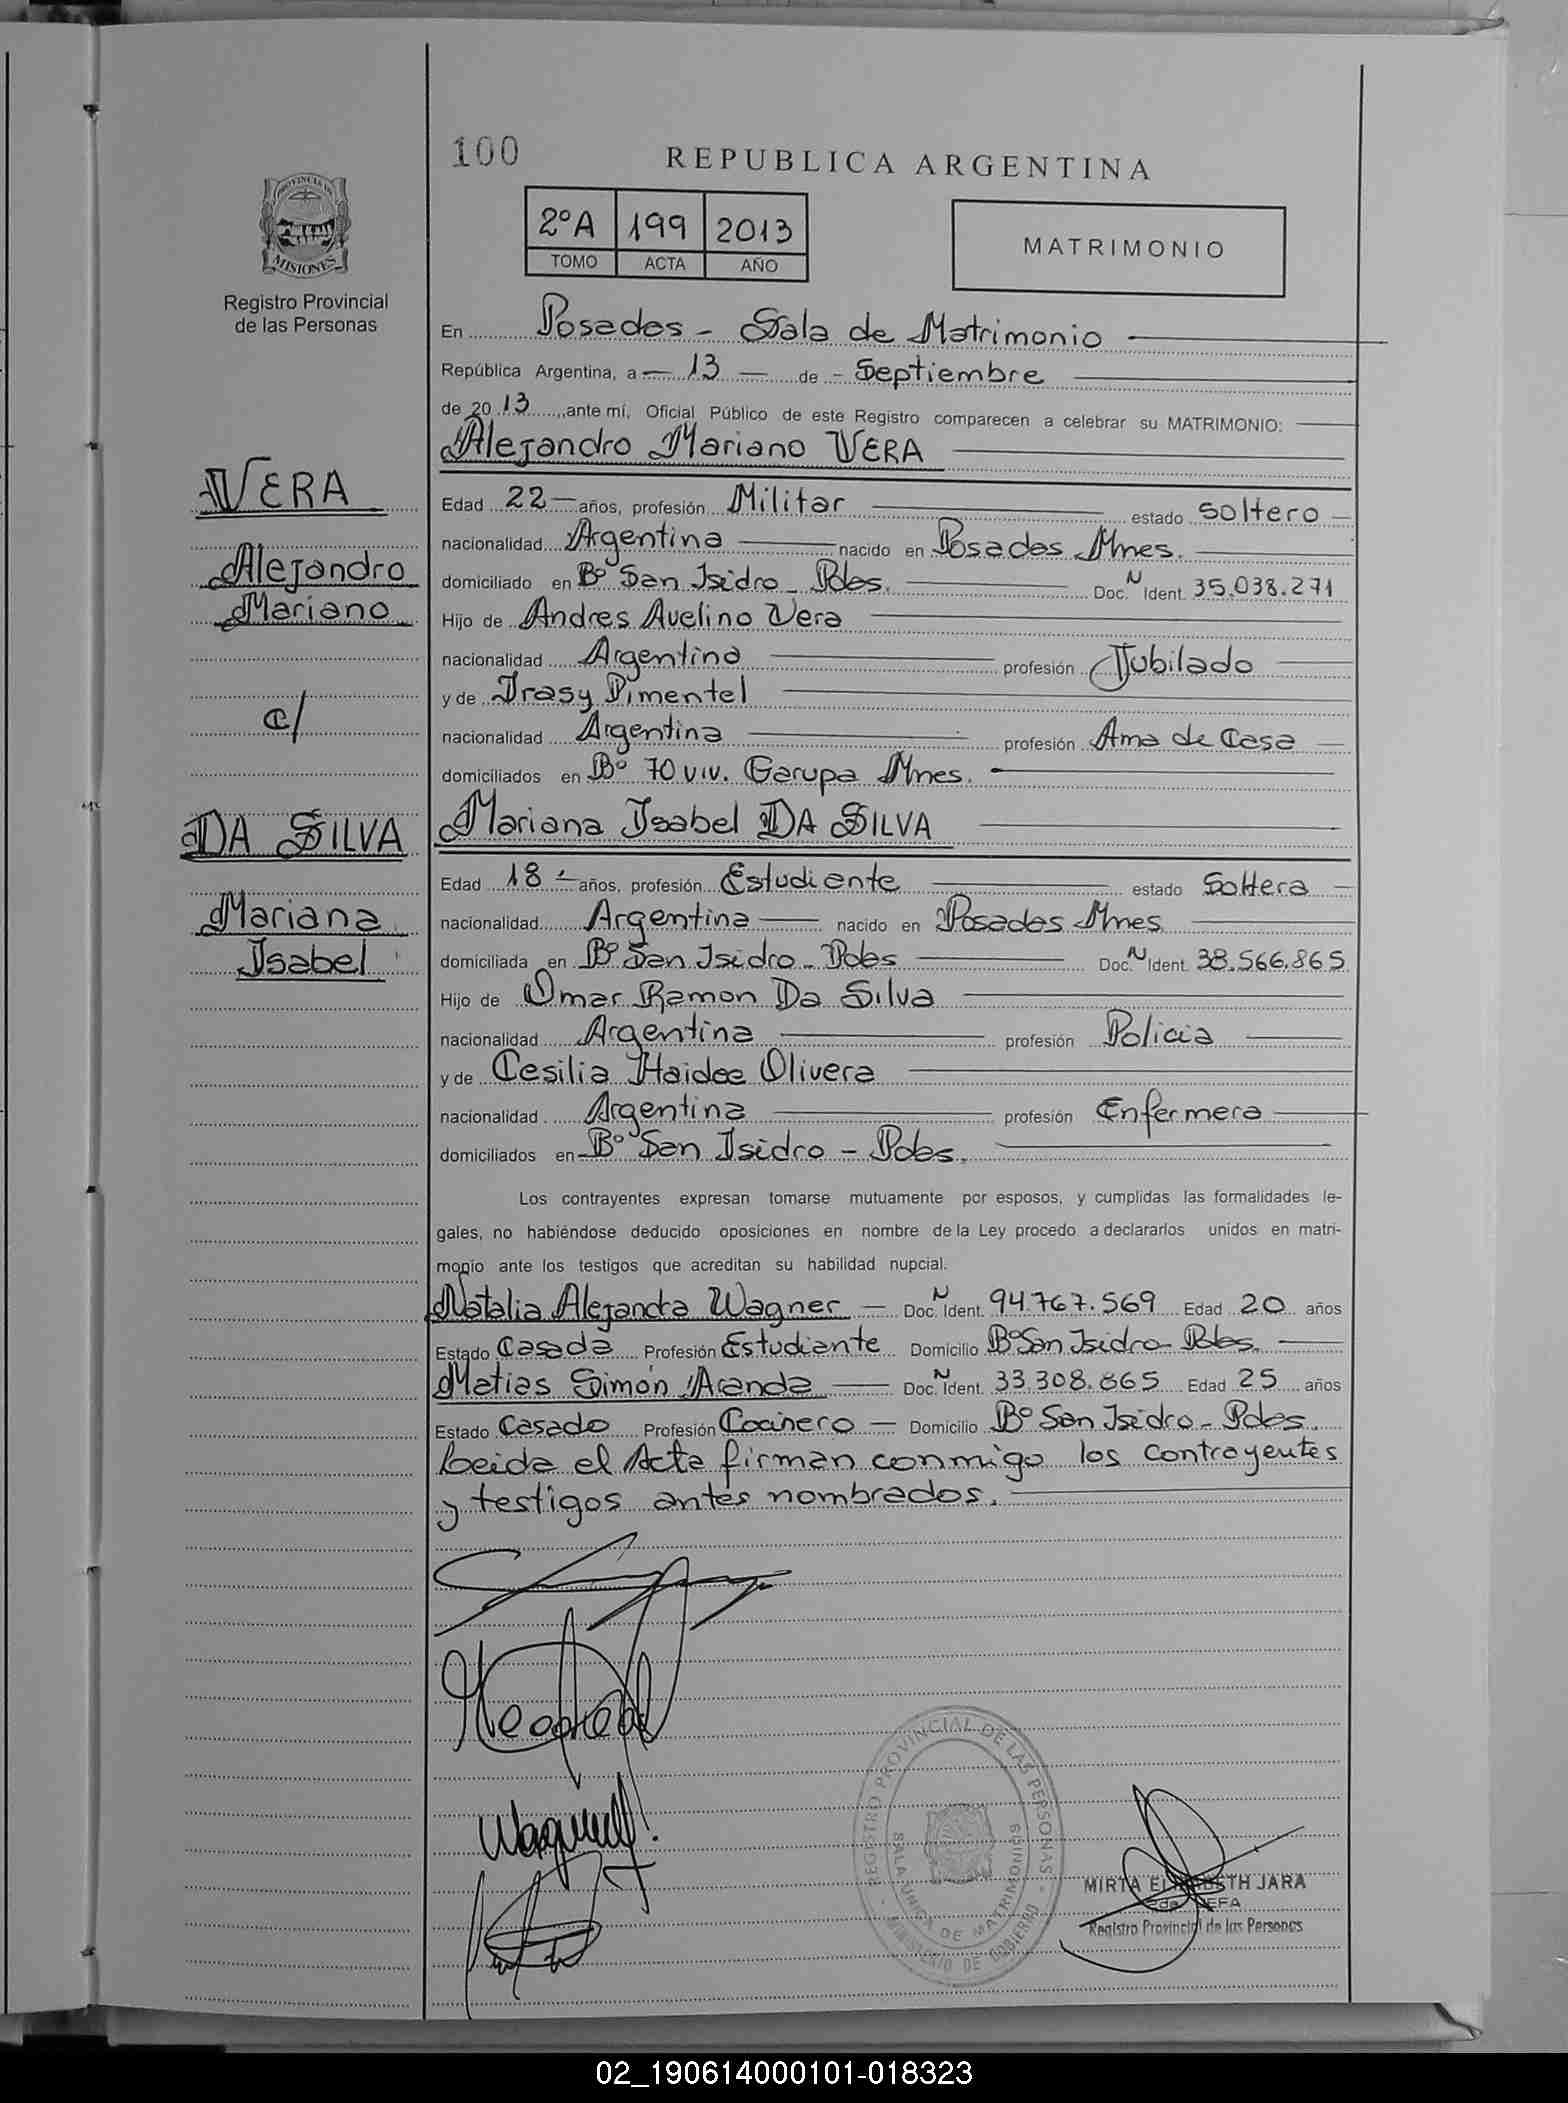 100
REPUBLICA ARGENTINA
PROVINCIA DE
MISIONES
Registro Provincial
de las Personas
2ºA 199 2013
TOMO ACTA AÑO
MATRIMONIO
En Posadas - Sala de Matrimonio
República Argentina, a 13 de Septiembre
de 2013, ante mí, Oficial Público de este Registro comparecen a celebrar su MATRIMONIO:
Alejandro Mariano VERA
VERA
Alejandro
Mariano
Edad 22 años, profesión Militar estado soltero
nacionalidad Argentina nacido en Posadas Mnes.
domiciliado en Bº San Isidro - Pdas. Doc. N Ident. 35.038.271
Hijo de Andres Avelino Vera
nacionalidad Argentino profesión Jubilado
y de Irasy Pimentel
c/
nacionalidad Argentina profesión Ama de Casa
domiciliados en Bº 70 viv. Garupa Mnes.
DA SILVA
Mariana
Isabel
Mariana Isabel DA SILVA
Edad 18 años, profesión Estudiante estado Soltera
nacionalidad Argentina nacido en Posadas Mnes
domiciliada en Bº San Isidro - Pdas Doc. N Ident. 38.566.865
Hijo de Omar Ramon Da Silva
nacionalidad Argentina profesión Policia
y de Cesilia Haidee Olivera
nacionalidad Argentina profesión Enfermera
domiciliados en Bº San Isidro - Pdas.
Los contrayentes expresan tomarse mutuamente por esposos, y cumplidas las formalidades le-
gales, no habiéndose deducido oposiciones en nombre de la Ley procedo a declararlos unidos en matri-
monio ante los testigos que acreditan su habilidad nupcial.
Natalia Alejandra Wagner - Doc. N Ident. 94.767.569 Edad 20 años
Estado Casada Profesión Estudiante Domicilio Bº San Isidro - Pdas.
Matias Simón Aranda Doc. N Ident. 33.308.865 Edad 25 años
Estado Casado Profesión Cocinero - Domicilio Bº San Isidro - Pdas.
Leida el Acta firman conmigo los contrayentes
y testigos antes nombrados.
REGISTRO PROVINCIAL DE LAS PERSONAS
SALA UNICA DE MATRIMONIOS
MINISTERIO DE GOBIERNO
MIRTA ELIZABETH JARA
Registro Provincial de las Personas
02_190614000101-018323